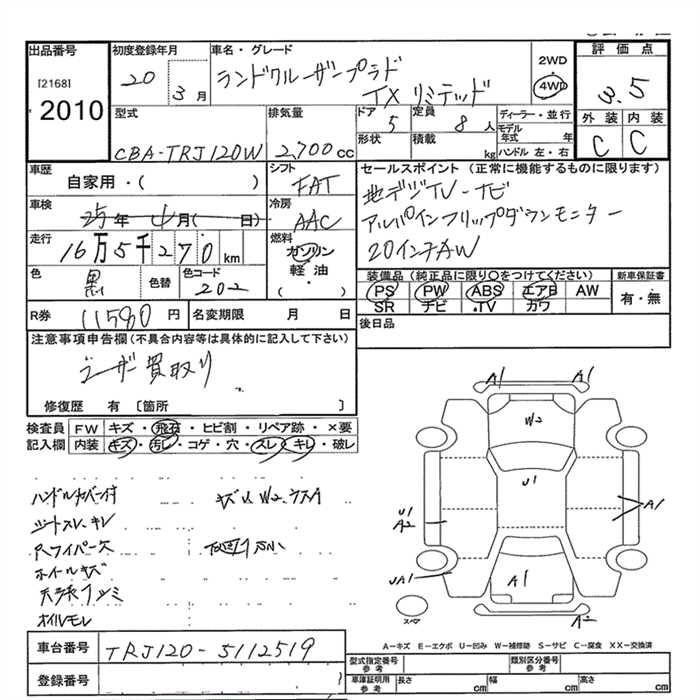 出品番号
[2168]
2010
初度登録年月
20 3月
車名・グレード
ランドクルーザープラド
TX リミテッド
2WD
4WD
評価点
3.5
外装 内装
C C
型式
CBA-TRJ120W
排気量
2,700cc
ドア 5
定員 8人
形状
積載 kg
ディーラー・並行
モデル年式 年
ハンドル 左・右
車歴
自家用・( )
シフト
FAT
セールスポイント (正常に機能するものに限ります)
地デジTV-ナビ
アルパインフリップダウンモニター
20インチAW
車検
25年 4月( 日)
冷房
AAC
走行
16万5千270km
燃料
ガソリン
軽油
( ・ )
色
黒
色替
色コード
202
装備品 (純正品に限り○をつけてください)
PS PW ABS エアB AW
SR ナビ .TV カワ
新車保証書
有・無
R券 11580円
名変期限 月 日
後日品
注意事項申告欄(不具合内容等は具体的に記入して下さい)
ユーザー買取り
修復歴 有 [箇所 ]
検査員記入欄
FW キズ・飛石・ヒビ割・リペア跡・×要
内装 キズ・汚レ・コゲ・穴・スレ・キレ・破レ
ハンドルカバー付
シートスレ、キレ
Rワイパー欠
ホイールキズ
オイルモレ
A1 A1
W2
U1
U1
A2
A1
UA1
A1
A2
スペア
A−キズ E−エクボ U−凹み W−補修跡 S−サビ C−腐食 XX−交換済
車台番号
TRJ120-5112519
登録番号
型式指定番号
参考
類別区分番号
参考
車庫証明用
参考
長さ cm
幅 cm
高さ cm